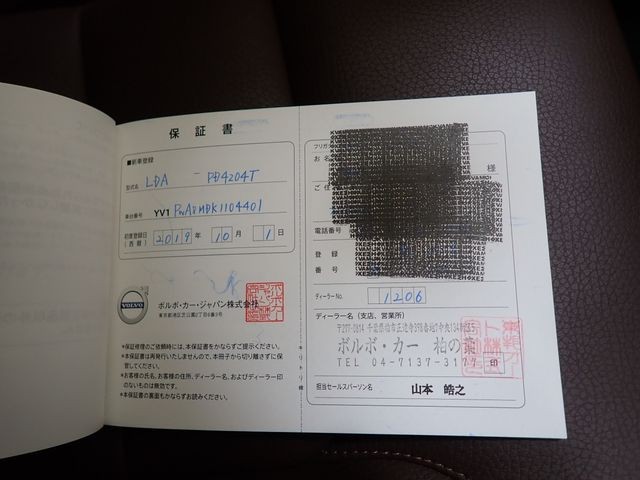 保証書
■新車登録
型式名 LDA - PD4204T
車台番号 YV1
初度登録日(西暦) 2019年 10月 1日
VOLVO
ボルボ・カー・ジャパン株式会社
東京都港区芝公園2丁目6番3号
*保証修理のご依頼時には、本保証書をかならずご提示ください。
*本保証書は再発行いたしませんので、本冊子から切り離さずに保管してください。
*お客様の氏名、お客様の住所、ディーラー名、およびディーラー印のないものは無効です。
*本保証書の裏面もかならずお読みください。
キリトリ線
フリガ
お名
様
ご住
電話番号
登録
番号
ディーラーNo. 1206
ディーラー名(支店、営業所)
ボルボ・カー 柏の葉
TEL 04-7137-317
印
担当セールスパーソン名 山本 皓之